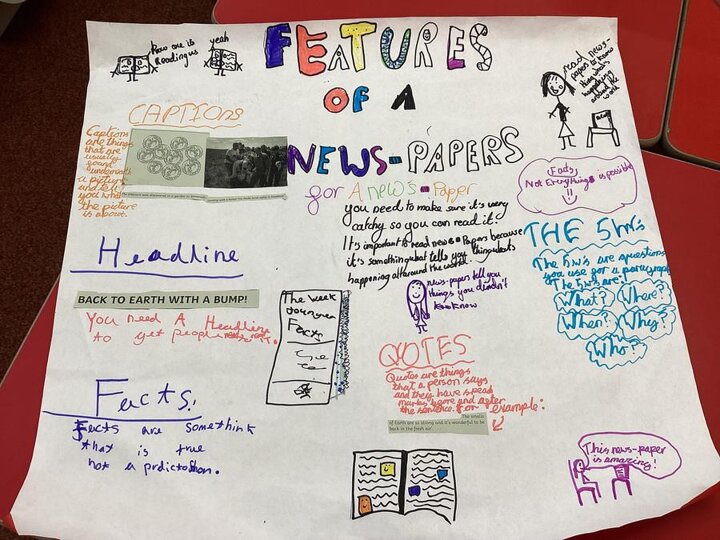 Now one is
Reading us
yeah
FEATURES
OF A
NEWS-PAPERS
I read news-
papers to know
what's
happening
around the
world
CAPTIONS
Captions
are things
that are
usually
underneath
a picture
and tell
you what
the picture
is about.
for A news-Paper
you need to make sure it's very
catchy so you can read it!
It's important to read news-Papers because
it's something that tells you things that's
happening all around the world.
news-papers tell you
things you didn't
know
Facts
Not Everything is possible
!!
THE 5W's
The 5w's are questions
you use for a paragraph
The 5w's are:
What?
Where?
When?
Why?
Who?
Headline
BACK TO EARTH WITH A BUMP!
You need A Headline
to get people
The Week
Junior
Facts
QUOTES
Quotes are things
that a person says
and they have speech
marks before and after
the sentence. For example:
of Earth are so strong and it's wonderful to be
back in the fresh air
Facts:
Facts are somethink
that is true
not a prdictoson.
This news-paper
is amazing!